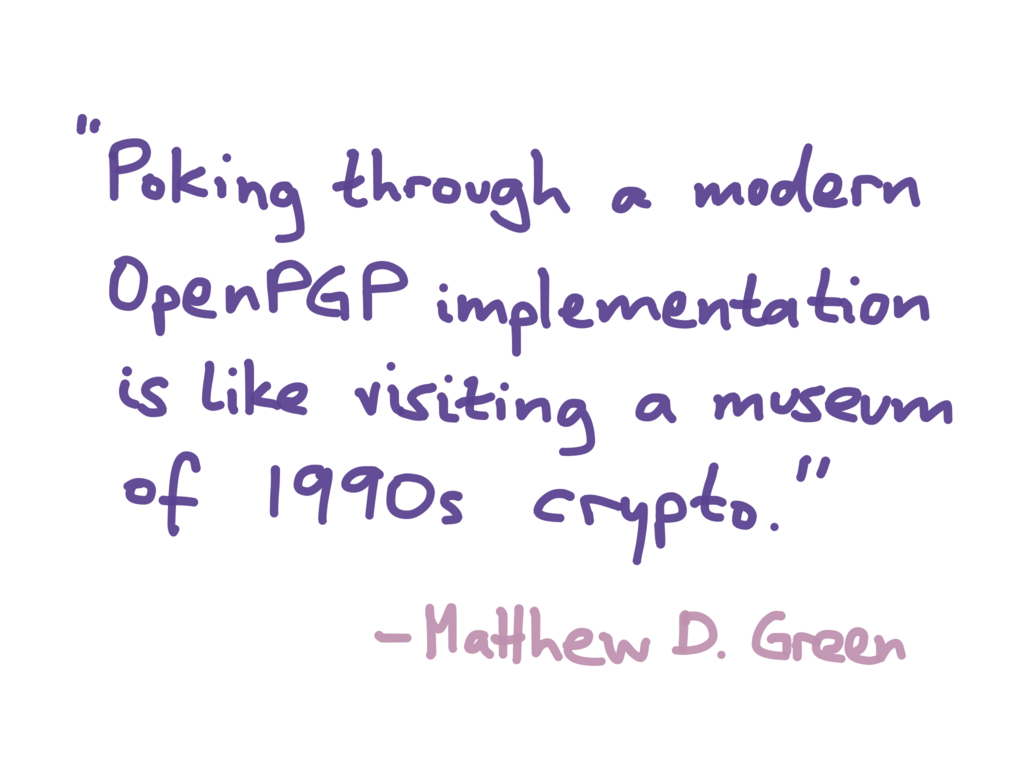 "Poking through a modern
OpenPGP implementation
is like visiting a museum
of 1990s crypto."
– Matthew D. Green